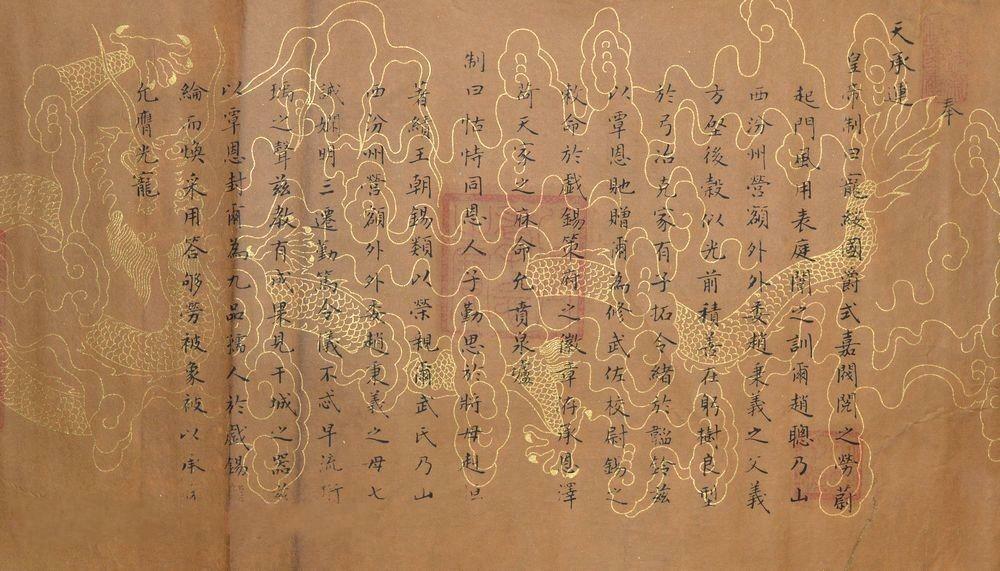 奉
天承運
皇帝制曰寵綏國爵式嘉閥閱之勞蔚
起門風用表庭闈之訓爾趙聰乃山
西汾州營額外外委趙秉義之父義
方後穀以光前積善在躬樹良型
於弓冶克家有子拓令緒於韜鈐茲
以覃恩貤贈爾為修武佐校尉錫之
敕命於戲錫策府之徽章洊承恩澤
荷天家之庥命允賁泉壚
制曰怙恃同恩人子勤思於將母赳
著績王朝錫類以榮親爾武氏乃山
西汾州營額外外委趙秉義之母七
誡嫻明三遷勤篤令儀不忒早流珩
瑀之聲茲教有成果見干城之器茲
以覃恩封爾為九品孺人於戲錫
綸而煥采用答劬勞被象被以承
允膺光寵